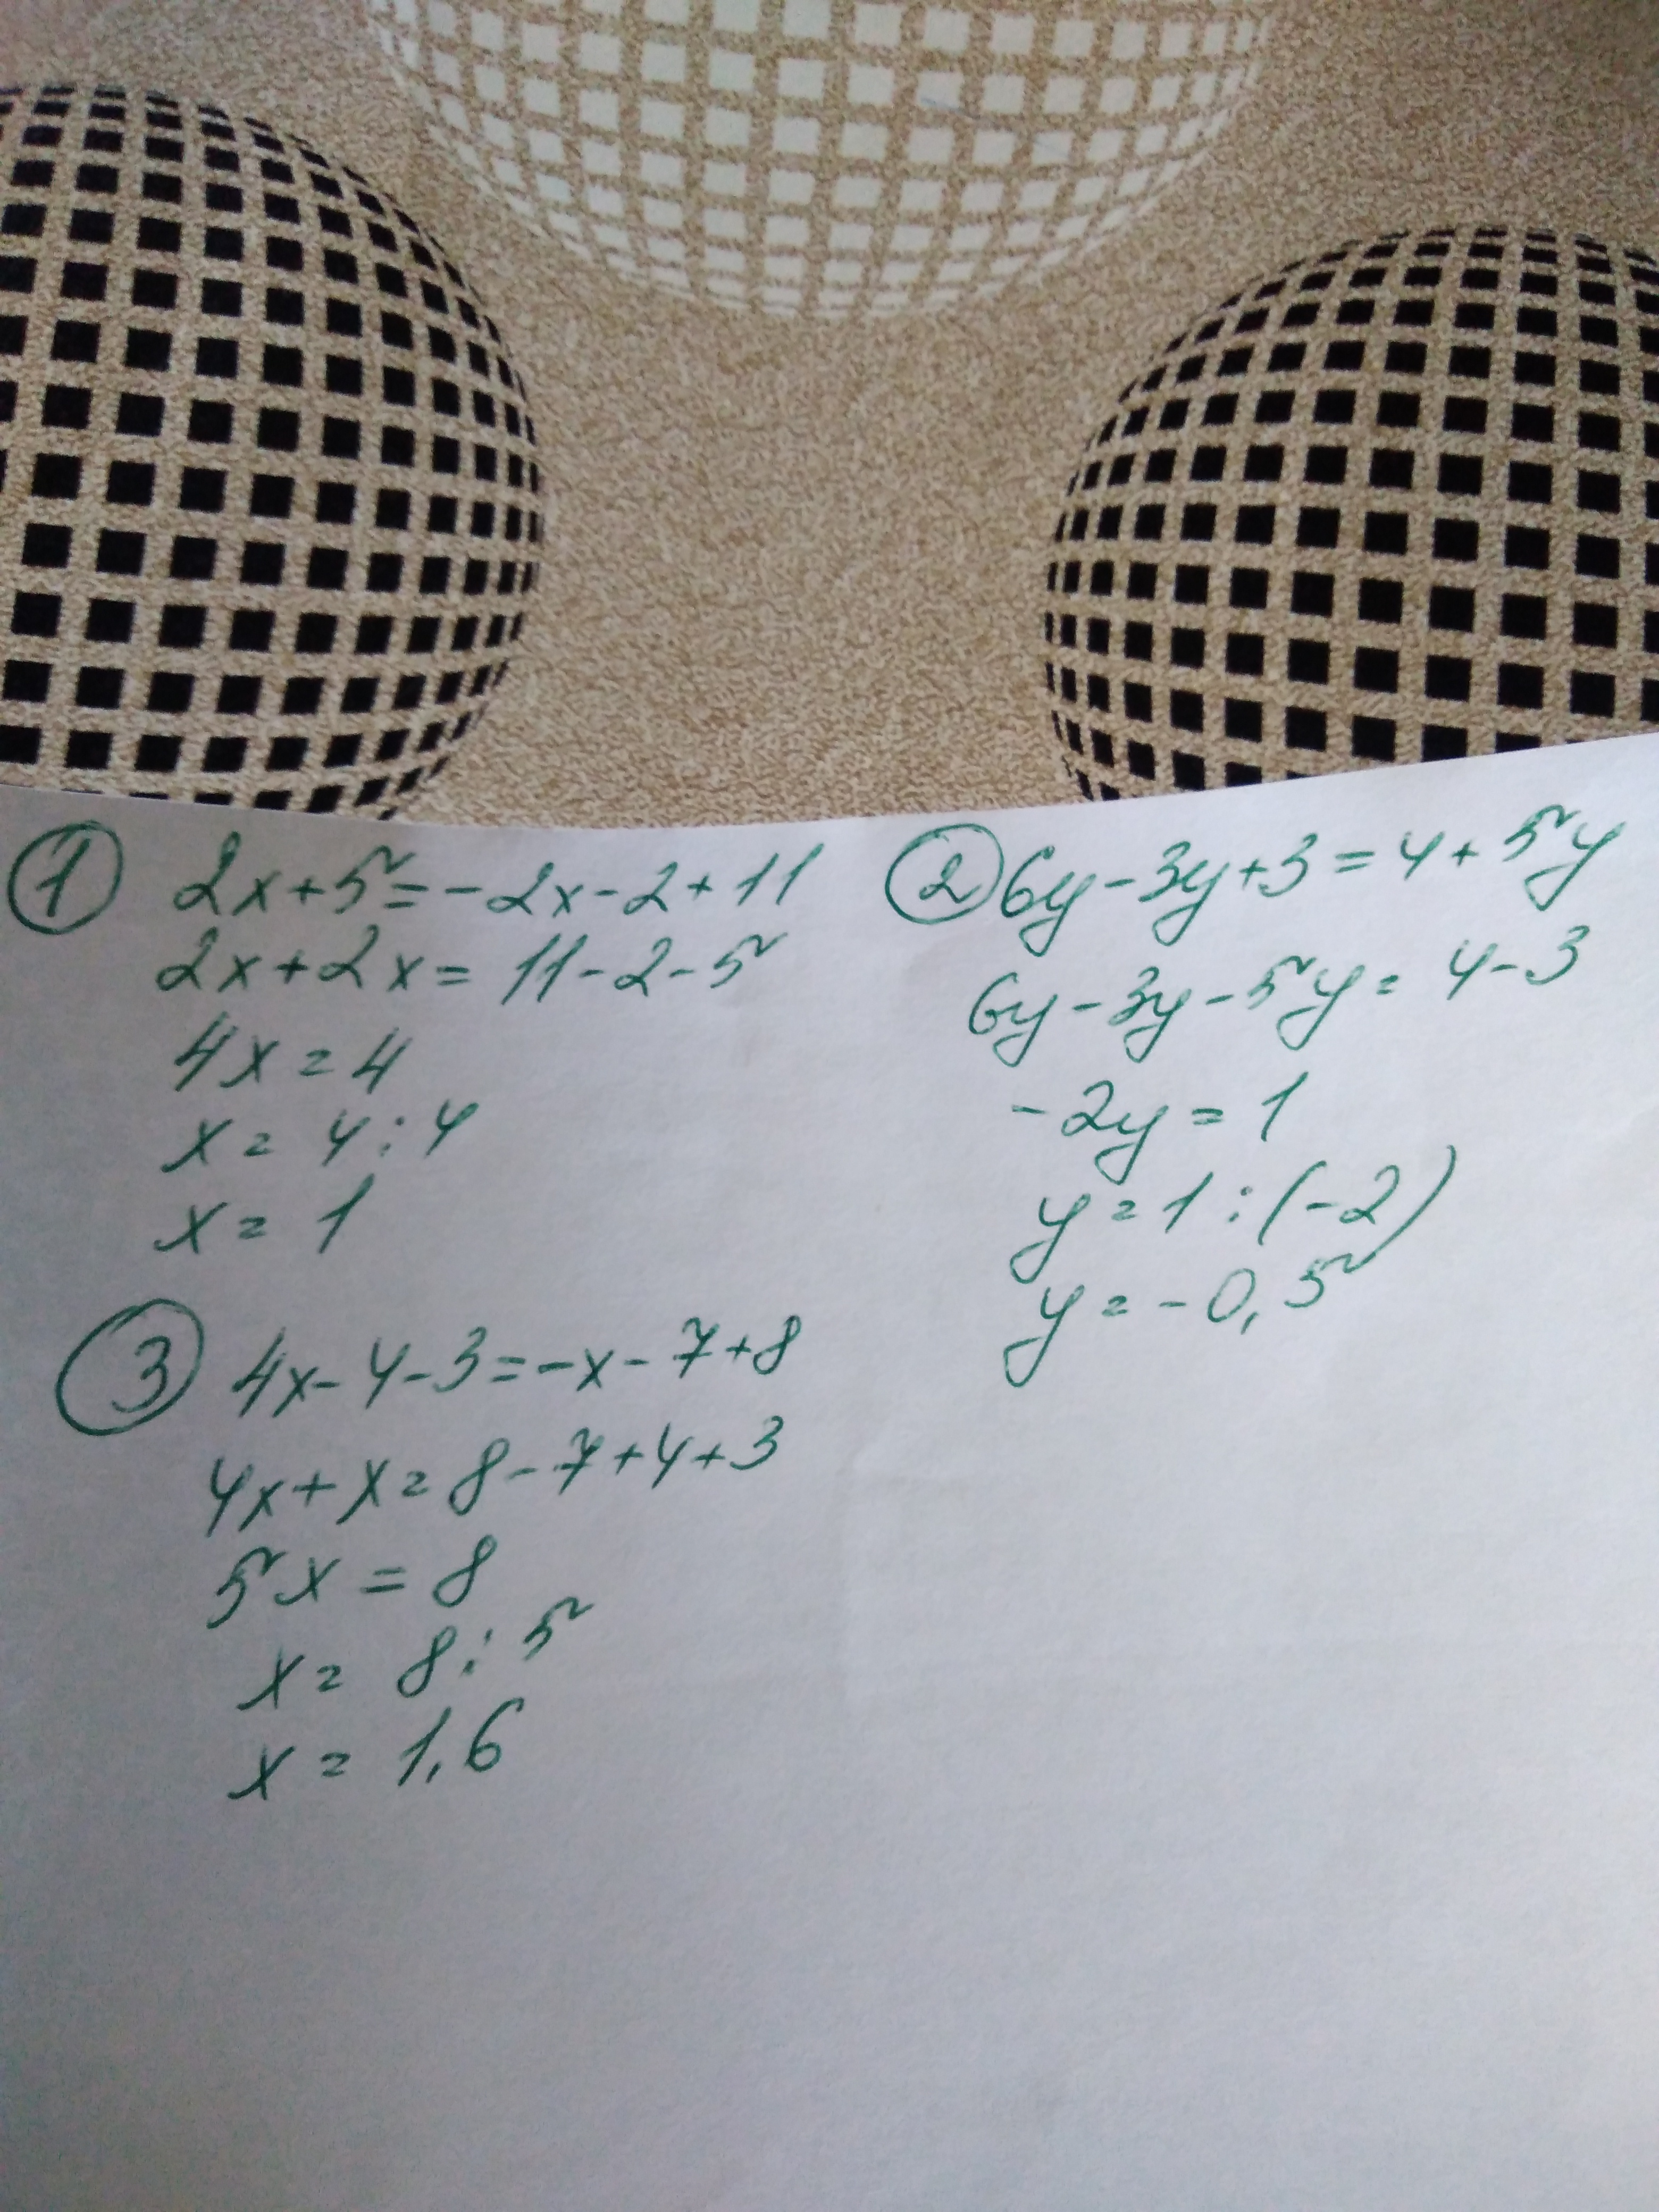 ① 2x+5=-2x-2+11
2x+2x=11-2-5
4x=4
x=4:4
x=1
② 6y-3y+3=4+5y
6y-3y-5y=4-3
-2y=1
y=1:(-2)
y=-0,5
③ 4x-4-3=-x-7+8
4x+x=8-7+4+3
5x=8
x=8:5
x=1,6